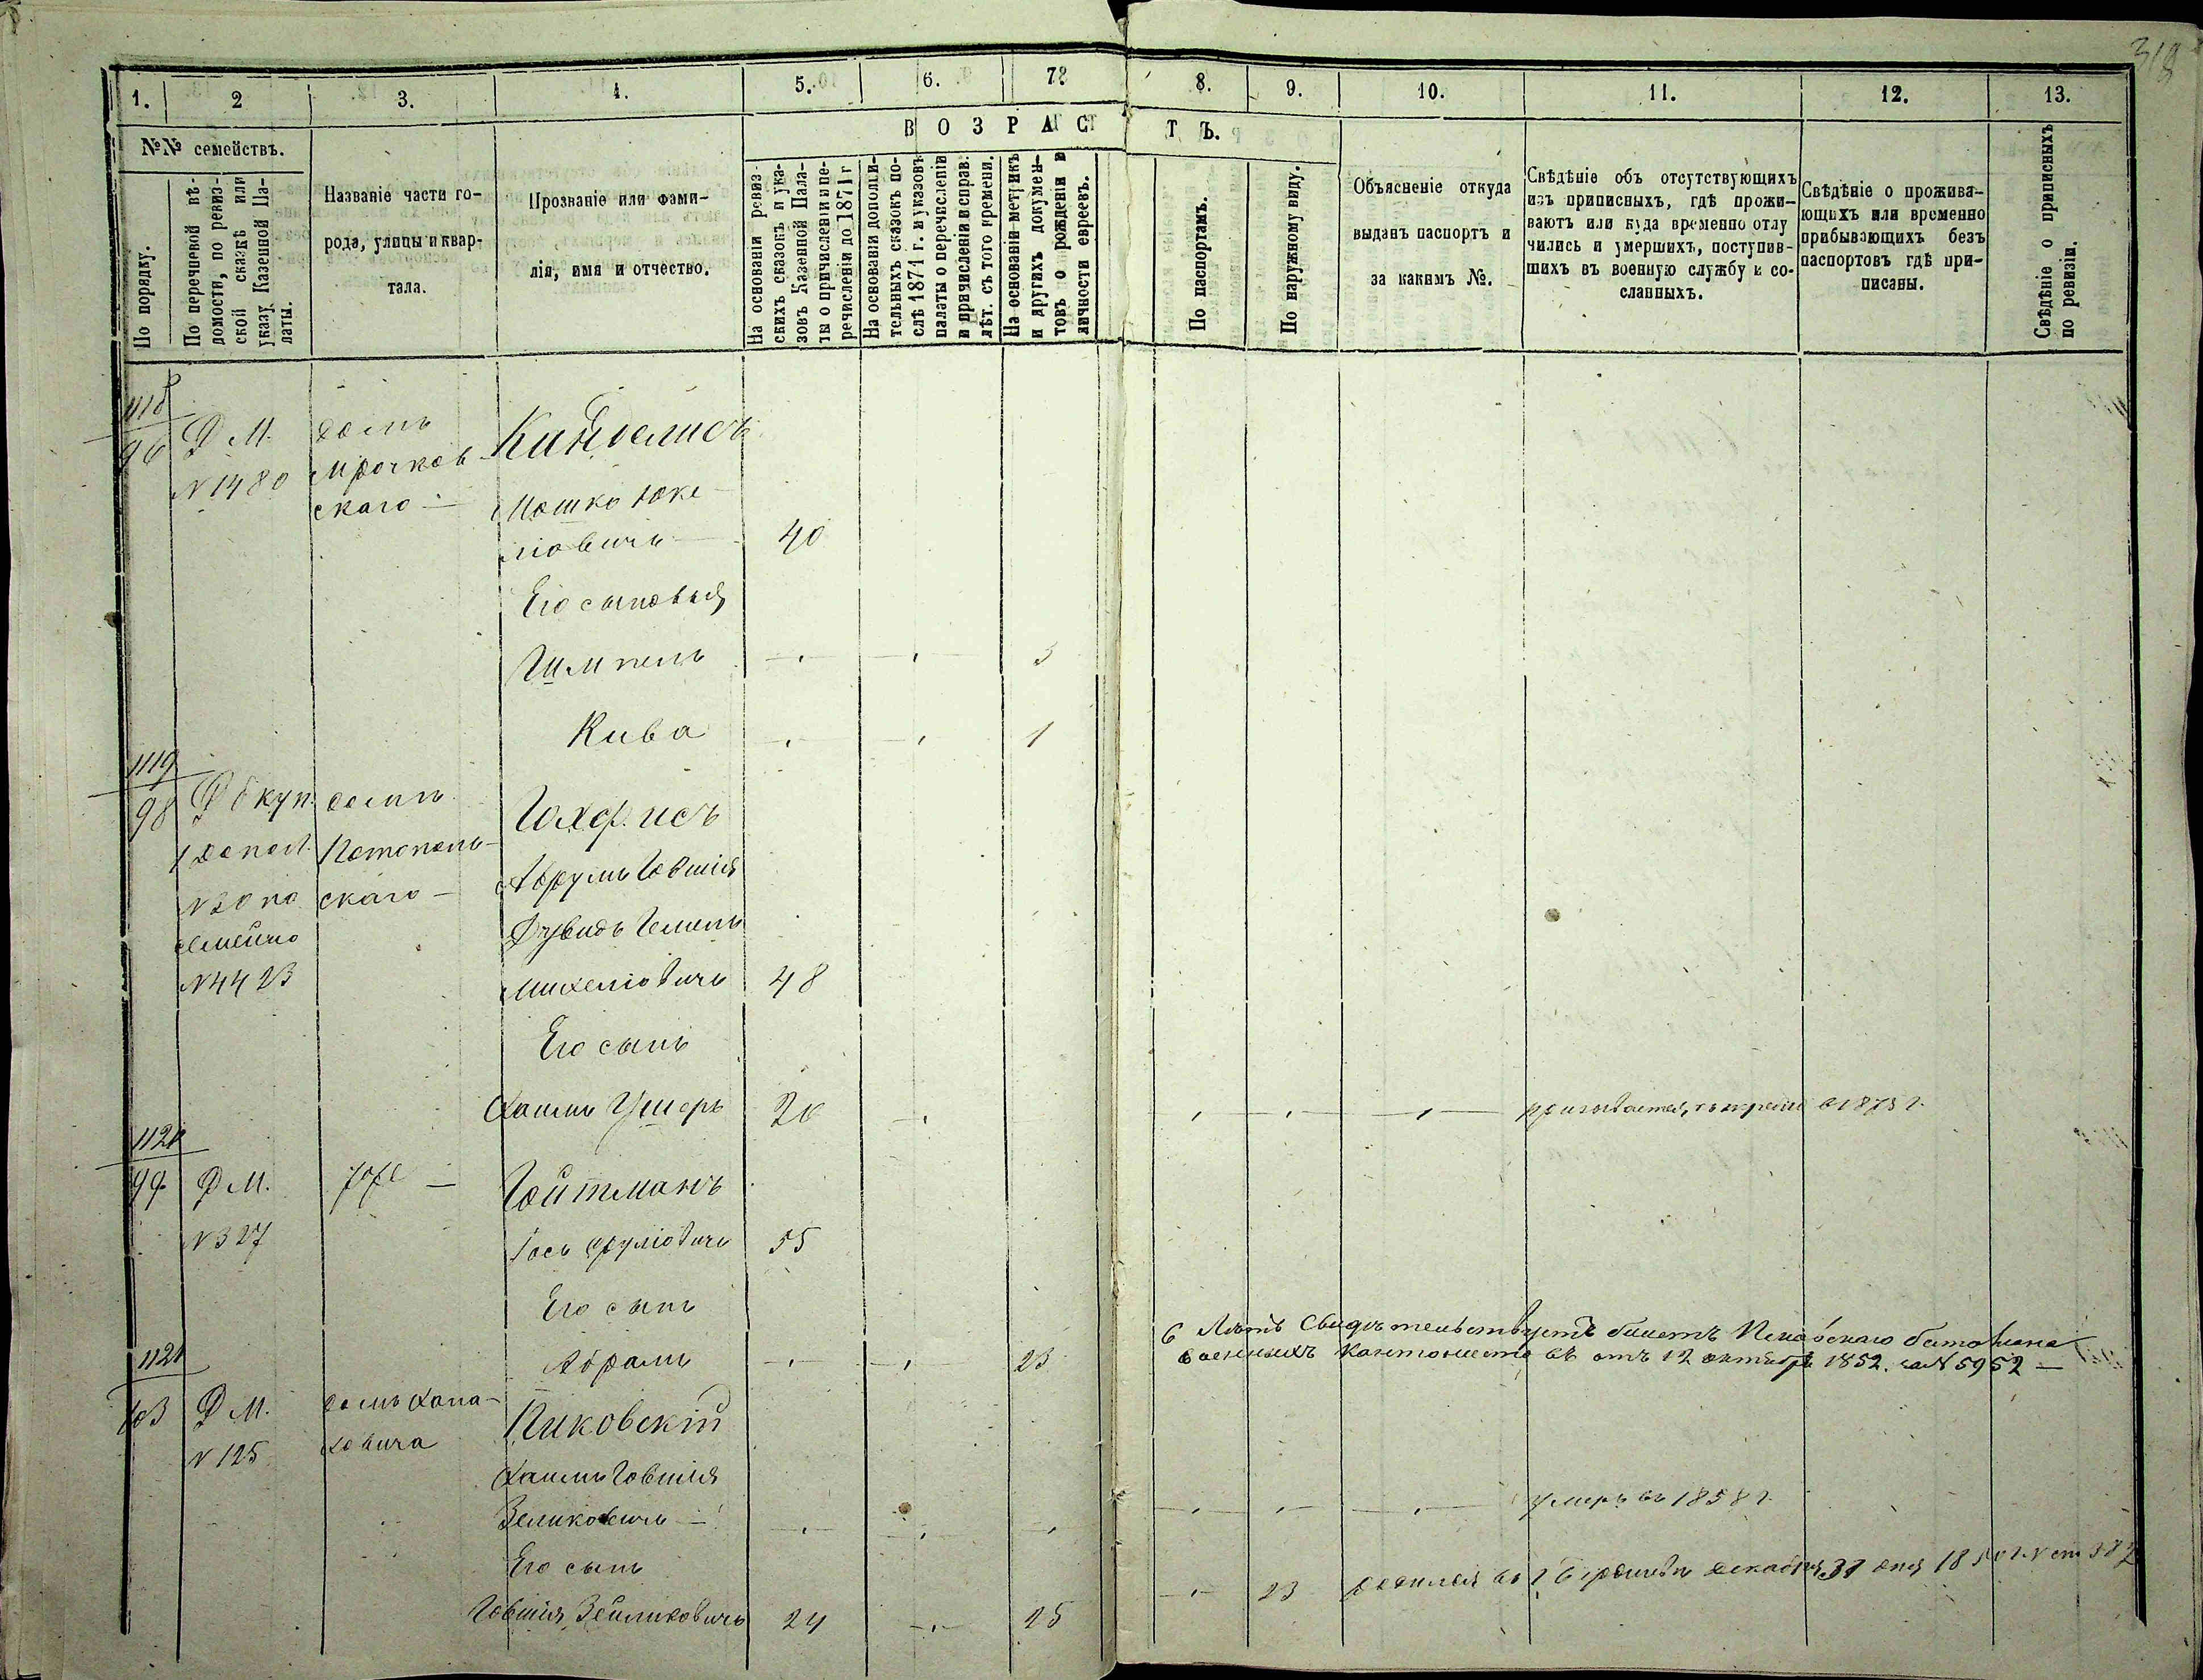 318
1. 2 3. 4. 5. 6. 7 8. 9. 10. 11. 12. 13.
№№ семействъ.
В О З Р А С Т Ъ.
По порядку.
По перечневой вѣ-
домости, по ревиз-
ской сказкѣ или
указу Казенной Па-
латы.
Названіе части го-
рода, улицы и квар-
тала.
Прозваніе или фами-
лія, имя и отчество.
На основаніи ревиз-
скихъ сказокъ и ука-
зовъ Казенной Пала-
ты о причисленіи и пе-
речисленіи до 1871 г
На основаніи дополни-
тельныхъ сказокъ по-
слѣ 1871 г. и указовъ
палаты о перечисленіи
и причисленіи и справ.
лѣт. съ того времени.
На основаніи метрикъ
и другихъ докумен-
товъ о рожденіи и
личности евреевъ.
По паспортамъ.
По наружному виду.
Объясненіе откуда
выданъ паспортъ и
за какимъ №.
Свѣдѣніе объ отсутствующихъ
изъ приписныхъ, гдѣ прожи-
ваютъ или куда временно отлу
чились и умершихъ, поступив-
шихъ въ военную службу и со-
сланныхъ.
Свѣдѣніе о прожива-
ющихъ или временно
прибывающихъ безъ
паспортовъ гдѣ при-
писаны.
Свѣдѣніе о приписныхъ
по ревизіи.
1118
96 Д М. домъ
N 1480 Мрочков-
скаго —
Мошко Юке-
ліовичъ — 40
Его сыновья
Гимпель — — 3
Кива — — 1
1119
98 домъ
N 20 по скаго —
семейно
N 4423
Михеліовичъ 48
Его сынъ
Хаимъ Ушеръ —
1120
99 Д М. тоже — Гойтманъ
N 327 55
Его сынъ
Абрамъ — — 23
6 Лѣтъ Свидѣтельствуетъ билетъ баталіона
военныхъ кантонистовъ отъ 12 октября 1852. за N 5952 —
1121
103 Д М. домъ Хана-
N 125 ховича
Пиковскій
Хаимъ Говшія
Зеликовичъ — — — — — — умеръ въ 1858 г.
Его сынъ
Говшія Зейликовичъ 24 — 25 — 23 родился въ г Бердичевѣ декабря 31 дня